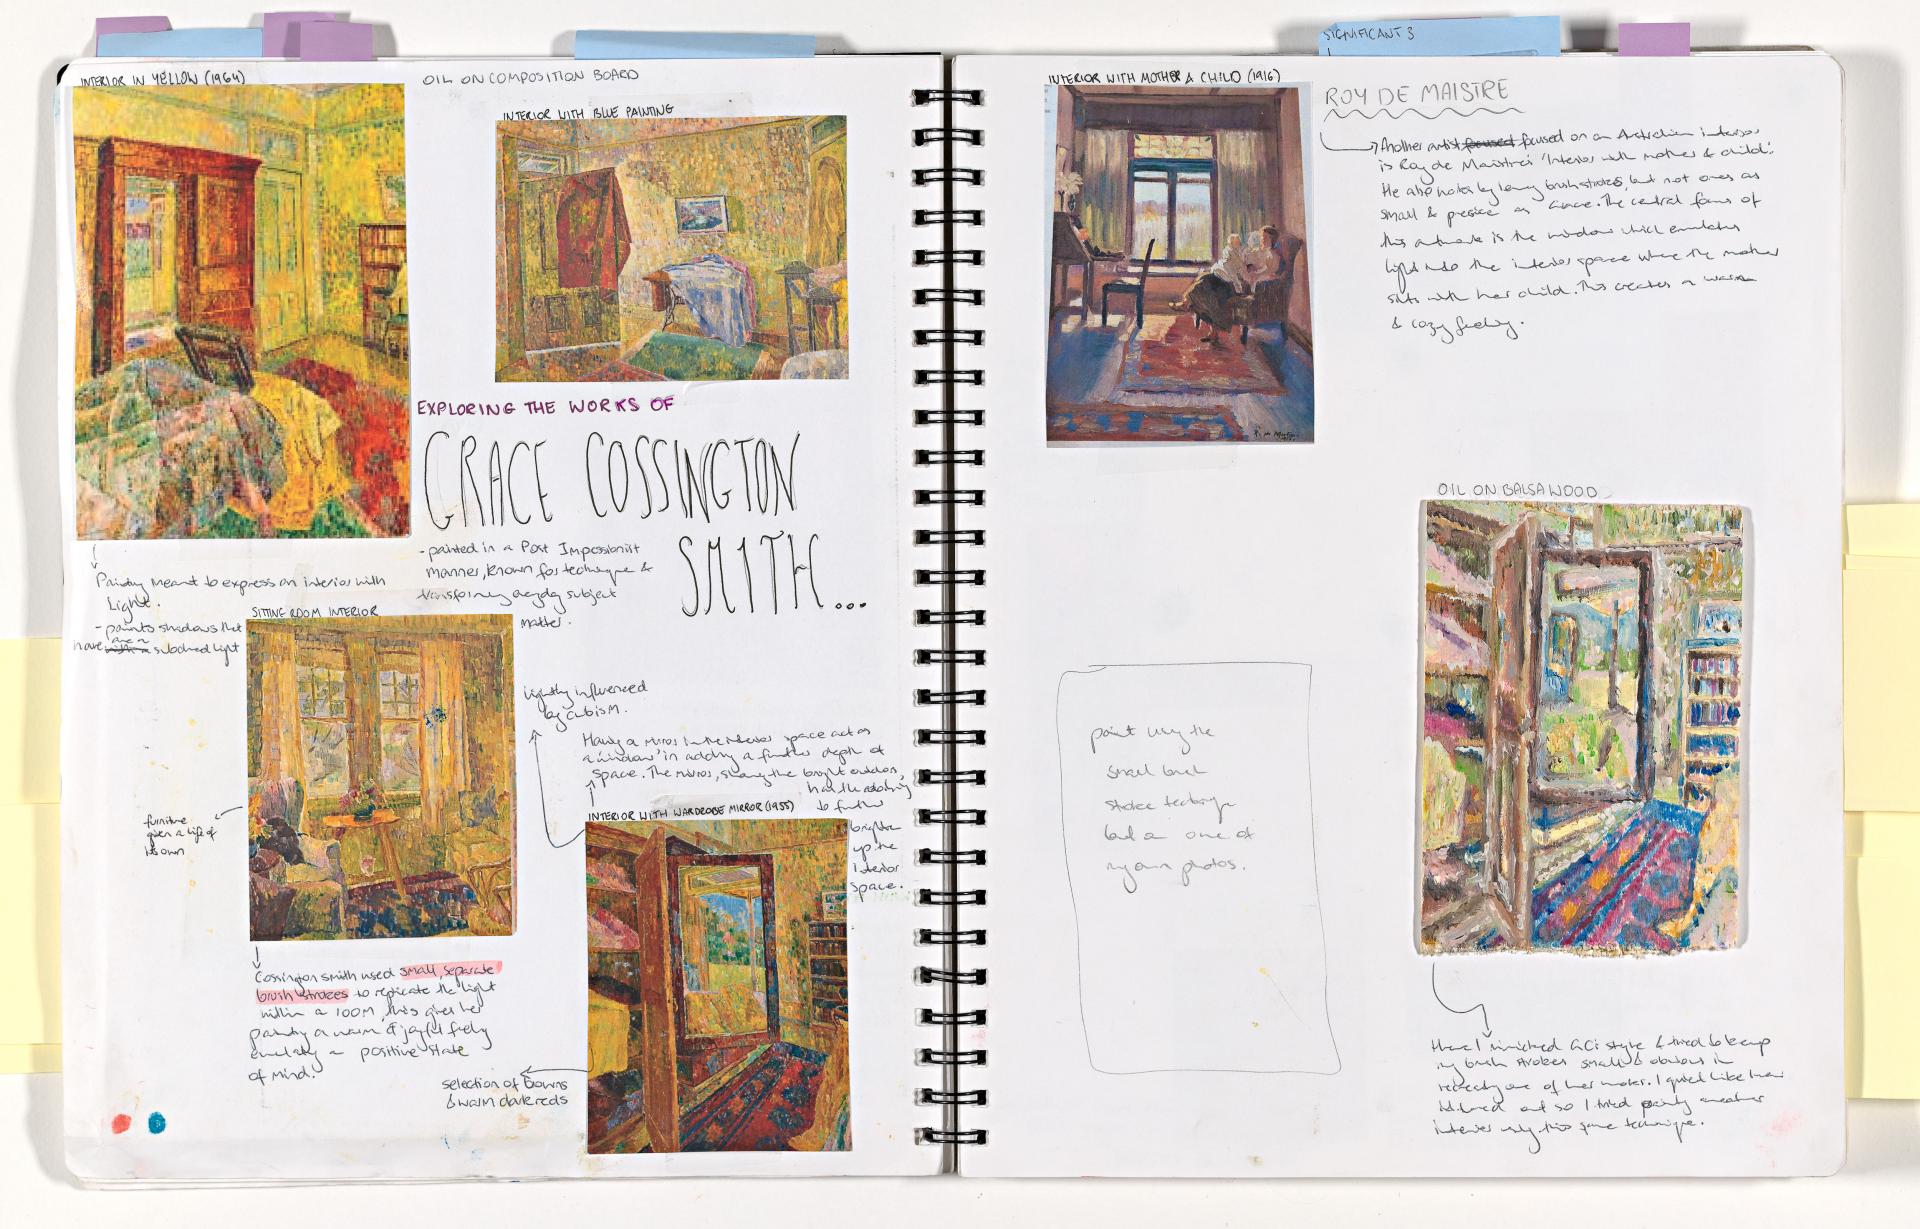 SIGNIFICANT 3
INTERIOR IN YELLOW (1964)
OIL ON COMPOSITION BOARD
INTERIOR WITH BLUE PAINTING
EXPLORING THE WORKS OF
GRACE COSSINGTON
SMITH...
- painted in a Post Impressionist
manner, known for technique &
transforming everyday subject
matter.
Painting meant to express an interior with
Light.
- paints shadows that
have are a subdued light
SITTING ROOM INTERIOR
furniture
given a life of
its own
lightly influenced
by cubism.
Having a mirror in the interior space act as
a 'window' in adding a further depth of
space. The mirror, showing the bright outdoors,
to further
brighten
up the
interior
space.
INTERIOR WITH WARDROBE MIRROR (1955)
Cossington smith used small, separate
brush strokes to replicate the light
within a room, this gives her
painting a warm & joyful feeling
emulating a positive state
of mind.
selection of browns
& warm dark reds
INTERIOR WITH MOTHER & CHILD (1916)
ROY DE MAISTRE
Another artist focused focused on an Australian interior
is Roy de Maistre's 'Interior with mother & child'.
He also works by brush strokes, but not ones as
small & precise as Grace. The central focus of
this artwork is the window which emulates
light into the interior space where the mother
sits with her child. This creates a warm
& cozy feeling.
OIL ON BALSA WOOD
paint using the
small brush
stroke technique
but on one of
my own photos.
Here I mimicked GC's style & tried to keep
my brush strokes small & obvious in
recreating one of her works. I quite like how
it turned out so I tried painting another
interior using this same technique.